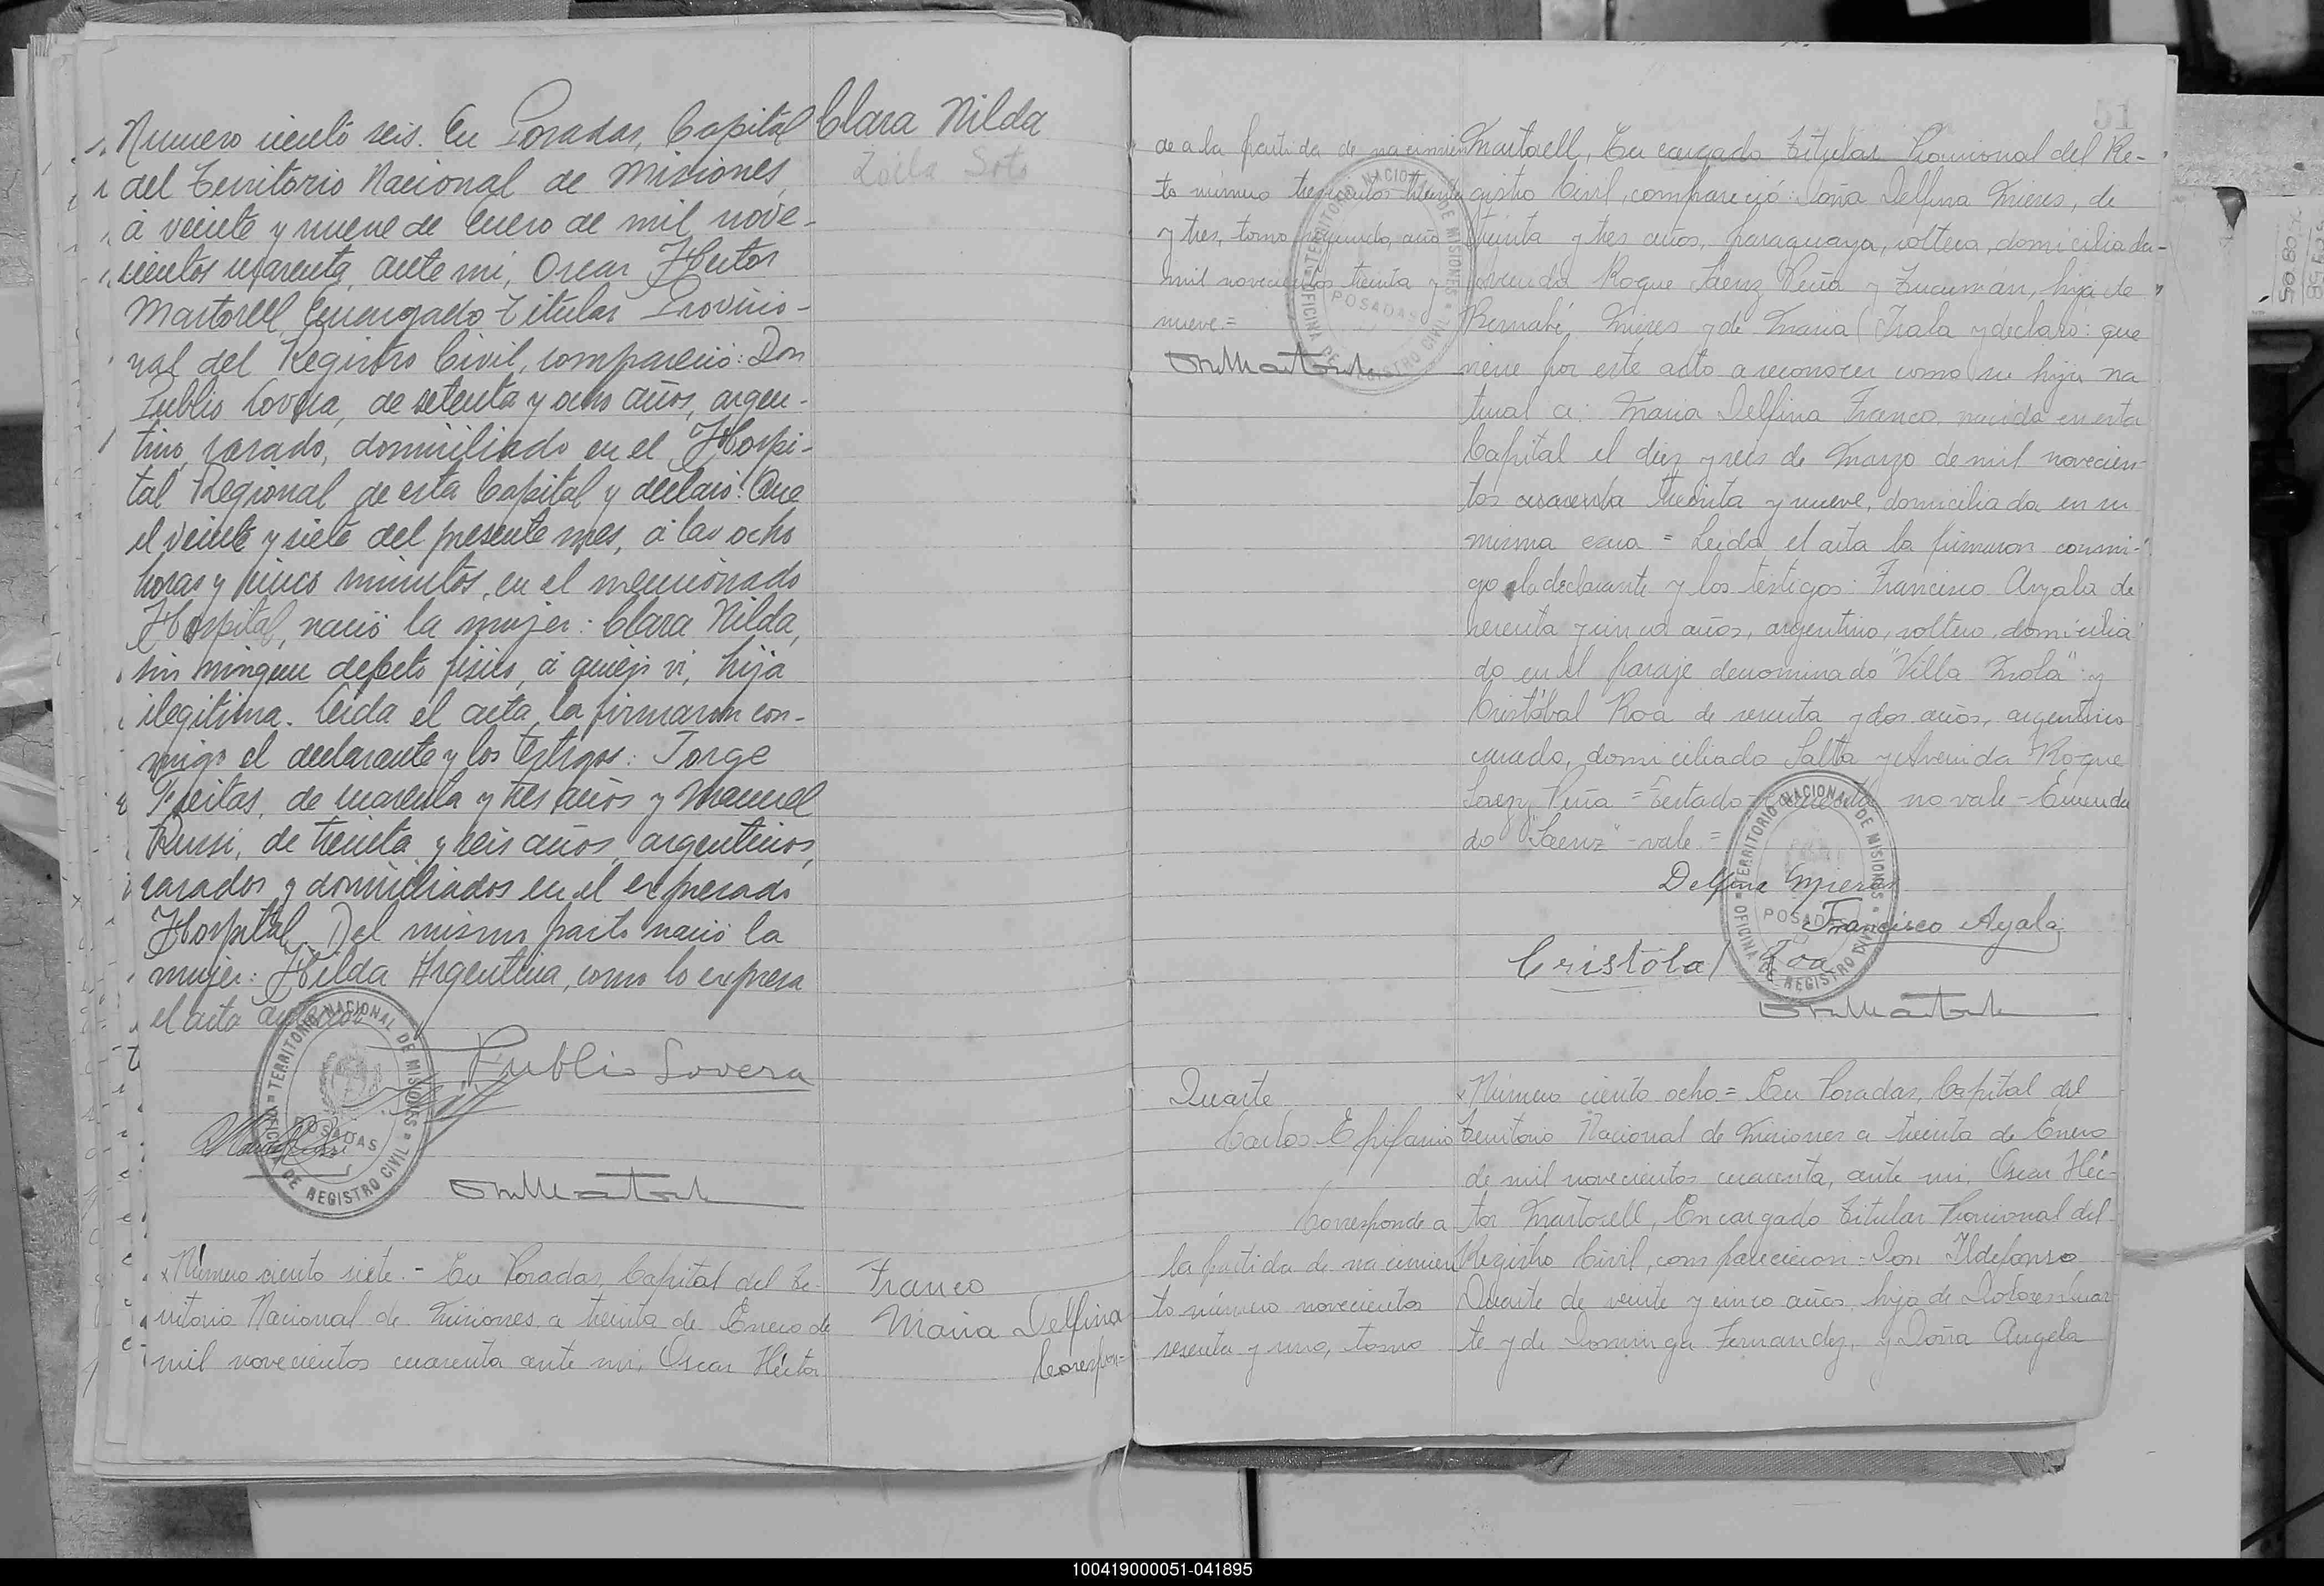 Numero ciento seis. En Posadas, Capital
del Territorio Nacional de Misiones,
á veinte y nueve de Enero de mil nove-
cientos cuarenta, ante mi, Oscar Hector
Martorell, Encargado Titular Provisio-
nal del Registro Civil, compareció: Don
Publio Lovera, de setenta y ocho años, argen-
tino, casado, domiciliado en el Hospi-
tal Regional de esta Capital y declaró: Que
el veinte y siete del presente mes, á las ocho
horas y cinco minutos, en el mencionado
Hospital, nació la mujer: Clara Nilda,
sin ningun defecto fisico, á quien vi, hija
ilegitima. Leida el acta, la firmaron con-
migo el declarante y los testigos: Jorge
Freitas, de cuarenta y tres años y Manuel
Russi, de treinta y seis años, argentinos,
casados y domiciliados en el expresado
Hospital. Del mismo parto nació la
mujer: Hilda Argentina, como lo expresa
el acta anterior
Clara Nilda
Zoila Soto
TERRITORIO NACIONAL DE MISIONES
POSADAS
OFICINA DE REGISTRO CIVIL
Publio Lovera
Número ciento siete.- En Posadas, Capital del Te-
rritorio Nacional de Misiones a treinta de Enero de
mil novecientos cuarenta ante mi, Oscar Héctor
Franco
Maria Delfina
Correspon=
51
de a la partida de nacimien
to número trescientos treinta
y tres, tomo segundo, año
mil novecientos treinta y
nueve.=
TERRITORIO NACIONAL DE MISIONES
POSADAS
OFICINA DE REGISTRO CIVIL
Martorell, Encargado Titular Provisional del Re-
gistro Civil, compareció: Doña Delfina Mieres, de
treinta y tres años, paraguaya, soltera, domiciliada-
Avenida Roque Saenz Peña y Tucuman, hija de
Bernabé Mieres y de Maria Irala y declaró: que
viene por este acto a reconocer como su hija na
tural a: Maria Delfina Franco, nacida en esta
Capital el diez y seis de Marzo de mil novecien-
tos cuarenta treinta y nueve, domiciliada en su
misma casa = Leida el acta la firmaron conmi-
go la declarante y los testigos: Francisco Ayala de
sesenta y cinco años, argentino, soltero, domicilia
do en el paraje denominado "Villa Mola" y
Cristóbal Roa de sesenta y dos años, argentino
casado, domiciliado Salta y Avenida Roque
Saenz Peña = Testado-cuarenta no vale - Enmenda
do "Saenz" - vale =
Delfina Mieres
Francisco Ayala
Cristóbal Roa
TERRITORIO NACIONAL DE MISIONES
POSADAS
OFICINA DE REGISTRO CIVIL
Duarte
Carlos Epifanio
Corresponde a
la partida de nacimien
to número novecientos
sesenta y uno, tomo
Número ciento ocho = En Posadas, Capital del
Territorio Nacional de Misiones a treinta de Enero
de mil novecientos cuarenta, ante mi, Oscar Héc-
tor Martorell, Encargado Titular Provisional del
Registro Civil, comparecieron: Don Ildefonso
Duarte de veinte y cinco años, hijo de Dolores Duar-
te y de Dominga Fernandez, y Doña Angela
100419000051-041895